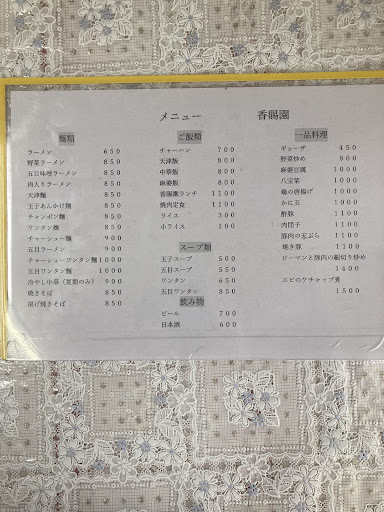 メニュー 香賜園
麺類
ラーメン 650
野菜ラーメン 850
五目味噌ラーメン 850
肉入りラーメン 850
天津麺 850
玉子あんかけ麺 850
チャンポン麺 850
ワンタン麺 850
チャーシュー麺 900
五目ラーメン 900
チャーシューワンタン麺 1000
五目ワンタン麺 1000
冷やし中華(夏期のみ) 900
焼きそば 850
揚げ焼きそば 850
ご飯類
チャーハン 700
天津飯 800
中華飯 800
麻婆飯 800
香賜園ランチ 1100
焼肉定食 1100
ライス 300
小ライス 100
スープ類
玉子スープ 500
五目スープ 550
ワンタン 650
五目ワンタン 850
飲み物
ビール 700
日本酒 600
一品料理
ギョーザ 450
野菜炒め 800
麻婆豆腐 1000
八宝菜 1000
鶏の唐揚げ 1000
かに玉 1000
酢豚 1100
肉団子 1100
豚肉の天ぷら 1100
焼き豚 1100
ピーマンと豚肉の細切り炒め
1400
エビのケチャップ煮
1500